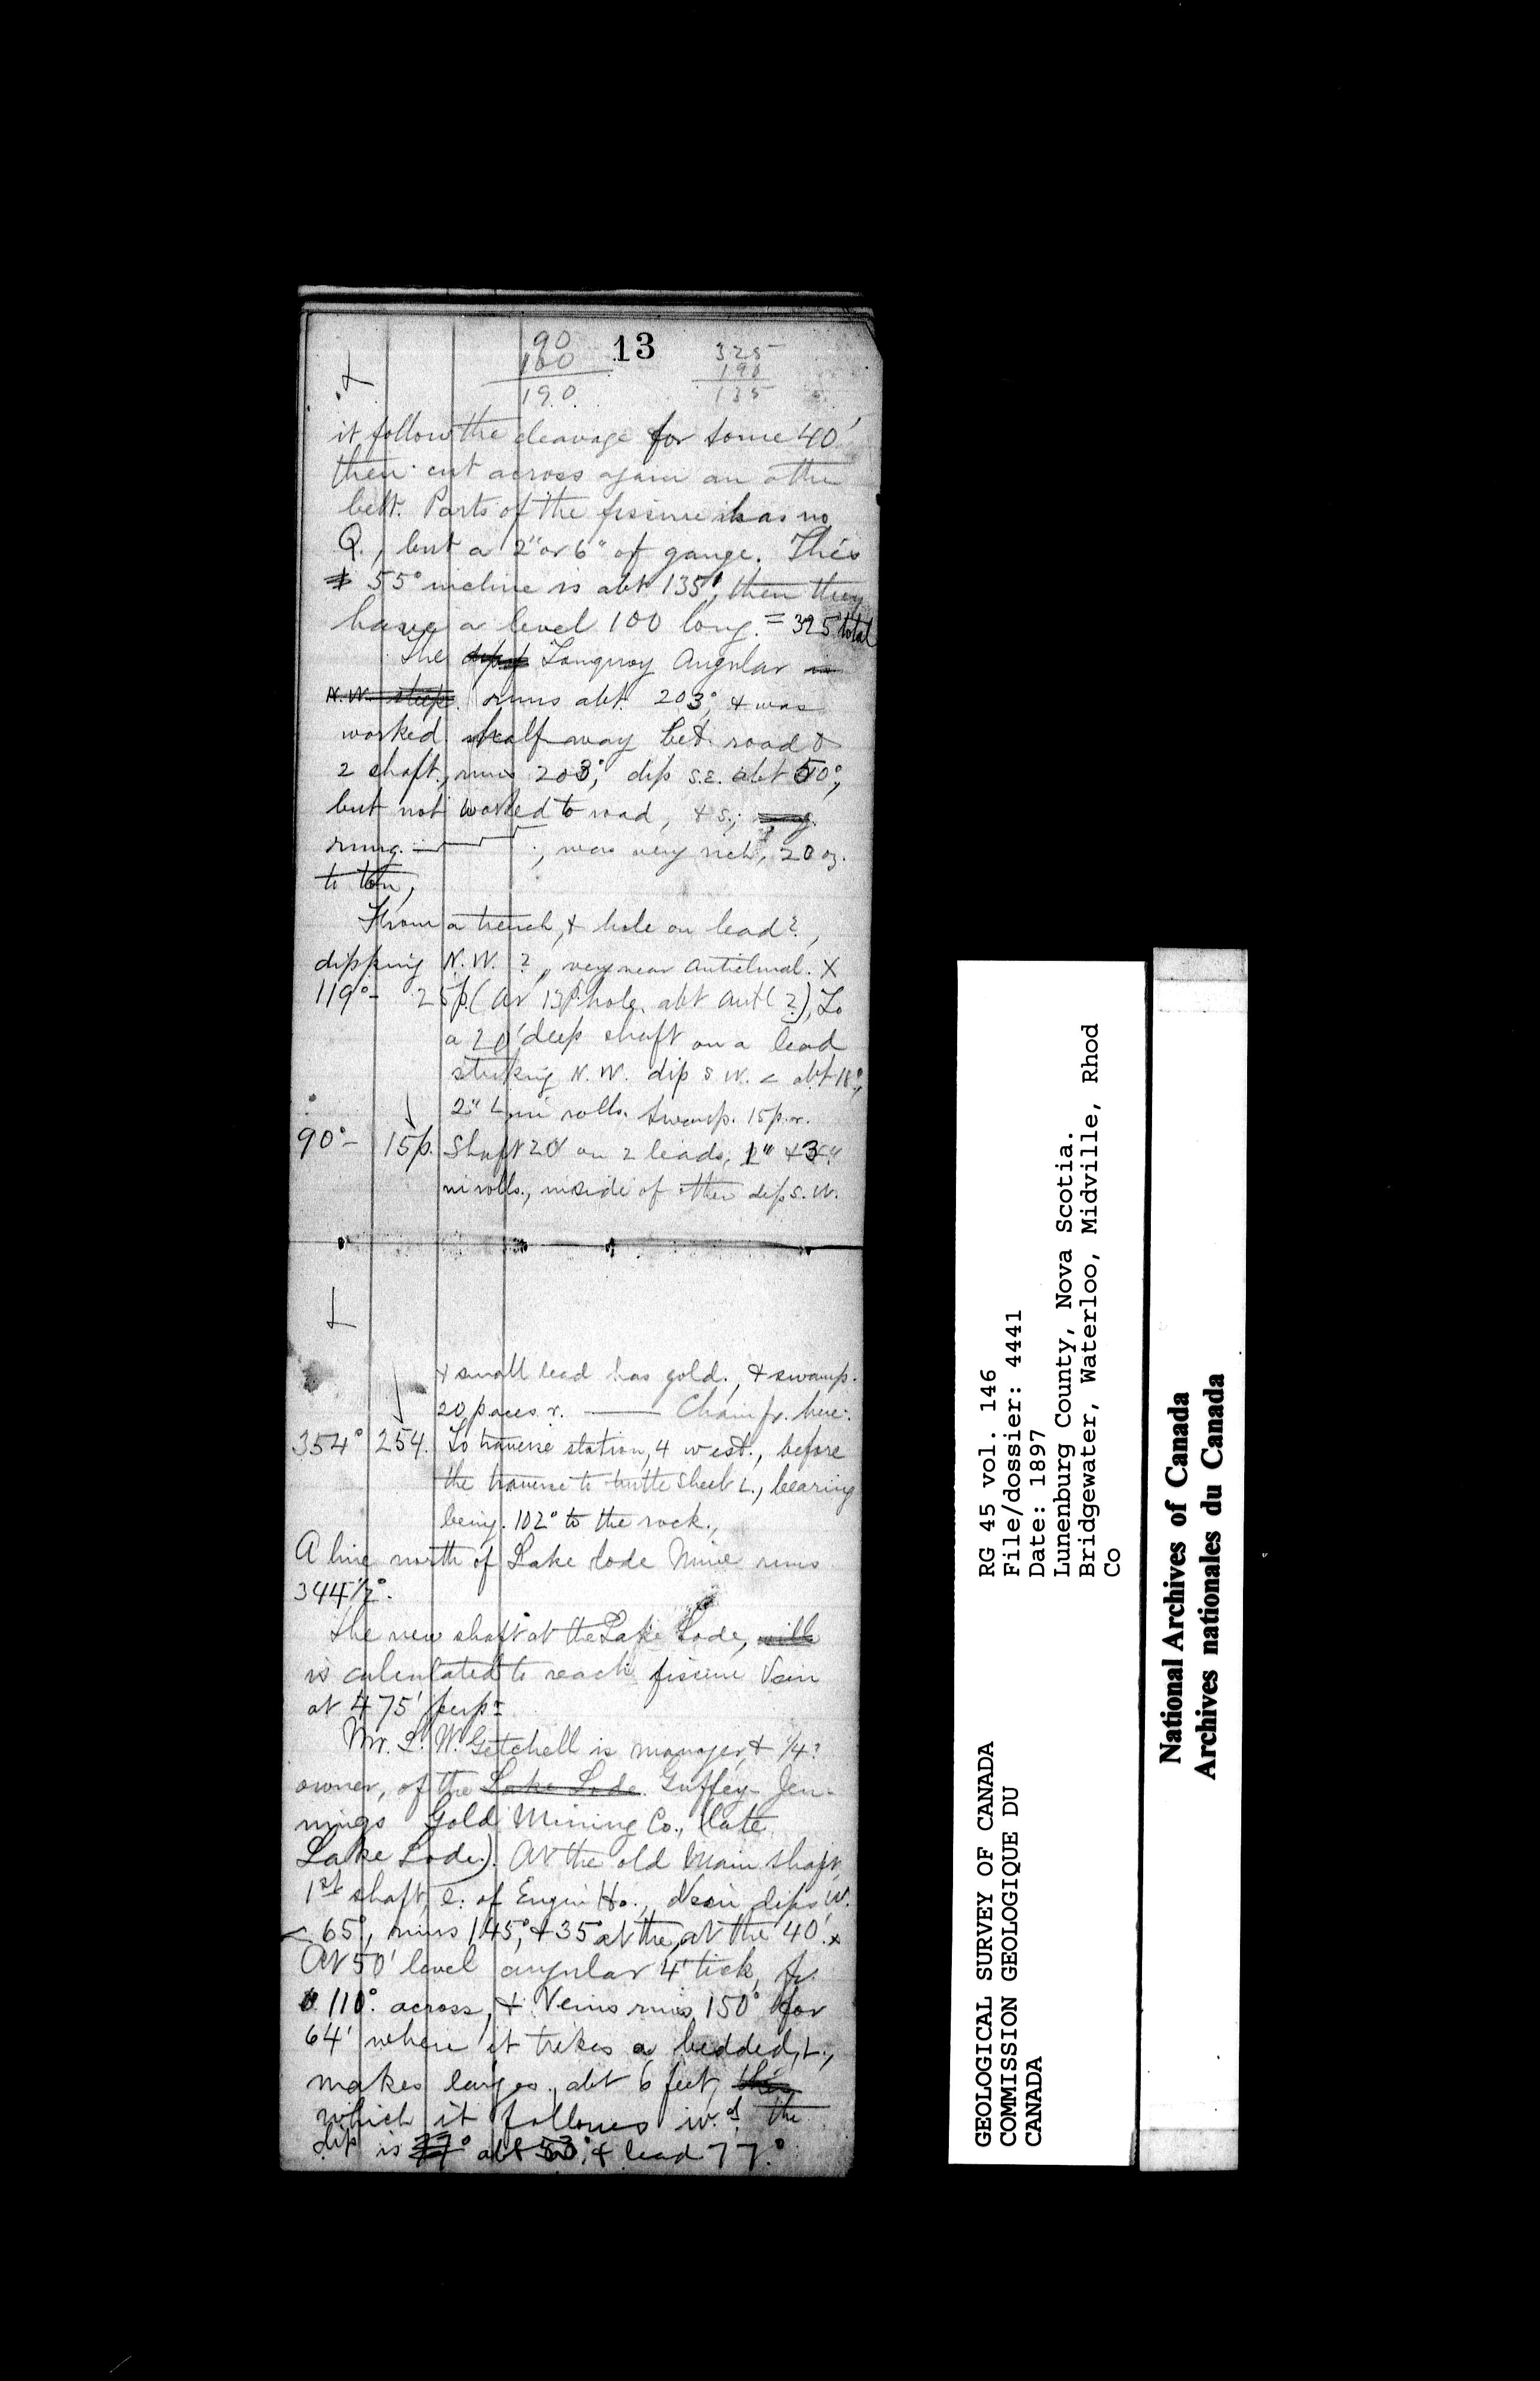 13
90
100
190
325
190
135
it follow the cleavage for some 40'
then cut across again an other
belt. Parts of the fissure has no
Q., but a 2" or 6" of gauge. This
55° incline is abt 135', then they
have a level 100 long. = 325 total
The Tanquoy Angular
runs abt. 203°, & was
worked half way bet. road &
2 shaft, runs 203°, dip S.E. abt 50°,
but not worked to road, & S.,
runng. ; was very rich, 20 oz.
to ton,
From a trench, & hole on lead?,
dipping N.W. ?, very near Anticlinal. X
119°- 25p. (at 13p hole, abt Antl ?), To
a 20' deep shaft on a lead
striking N.W. dip S.W. < abt 18°,
2" L, in rolls. Swamp. 15p. r.
90°- 15p. Shaft 20' on 2 leads, 1" & 3"
in rolls., inside of other dip S.W.
L
& small lead has gold., & swamp.
20 paces r. — Chain fr. here.
354° 254. To traverse station, 4 west., before
the traverse to sheet L., bearing
being. 102° to the rock.,
A line north of Lake Lode Mine runs
344½°.
The new shaft at the Lake Lode,
is calculated to reach fissure Vein
at 475' perpr
Mr. L. W. Getchell is manager, & 1/4?
owner, of the Lake Lode Guffey-Jen-
nings Gold Mining Co., (late
Lake Lode.). At the old Main shaft,
1st shaft, e. of Engin Ho., Vein dips W.
< 65°, runs 145°, & 35° at the, at the 40'. x
At 50' level angular 4' tick, fr.
110°. across, & Veins runs 150° for
64' where it trikes a bedded, L.,
makes larges., abt 6 feet,
which it follows w. of the
dip is abt 53°, & lead 77°.
GEOLOGICAL SURVEY OF CANADA
COMMISSION GEOLOGIQUE DU
CANADA
RG 45 vol. 146
File/dossier: 4441
Date: 1897
Lunenburg County, Nova Scotia.
Bridgewater, Waterloo, Midville, Rhod
Co
National Archives of Canada
Archives nationales du Canada